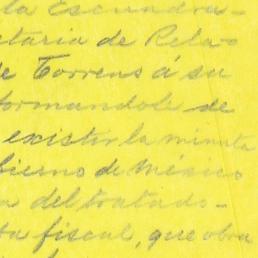 la Escundra-
etaria de Rela-
de Torrens á su
formandole de
existir la minuta
bierno de México
a del tratado-
ta fiscal, que obra